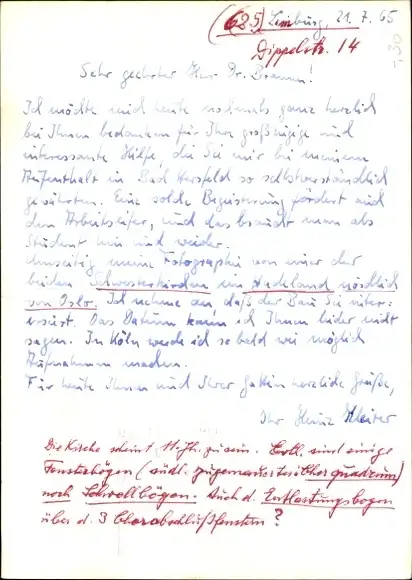 (625) Limburg, 21.7.65
Dippelstr. 14
-,30
Sehr geehrter Herr Dr. Braun!
Ich möchte mich heute nochmals ganz herzlich
bei Ihnen bedanken für Ihre großzügige und
interessante Hilfe, die Sie mir bei meinem
Aufenthalt in Bad Hersfeld so selbstverständlich
gewährten. Eine solche Begeisterung fördert auch
den Arbeitseifer, und das braucht man als
Student hin und wieder.
Umseitig meine Fotographie von einer der
beiden Schwesterkirchen in Hadeland nördlich
von Oslo. Ich nehme an daß der Bau Sie inter-
essiert. Das Datum kann ich Ihnen leider nicht
sagen. In Köln werde ich sobald wie möglich
Aufnahmen machen.
Für heute Ihnen und Ihrer Gattin herzliche Grüße,
Ihr Heinz
Die Kirche scheint 11. Jh. zu sein. Evtl. sind einige
Fensterbögen (südl. zugemauertes: Chorquadrum)
noch Schwellbögen. Auch d. Entlastungsbogen
über d. 3 Chorabschlußfenstern?